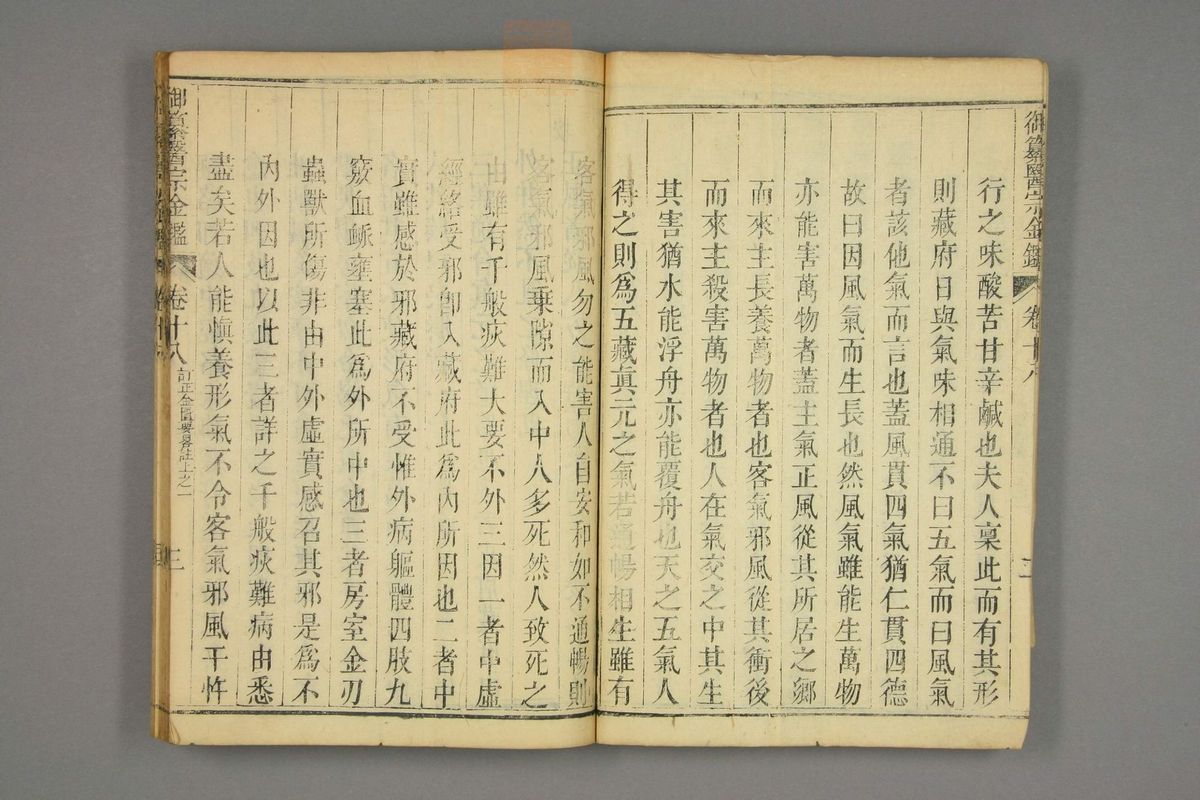 御纂醫宗金鑑 卷十八 二
行之味酸苦甘辛鹹也夫人稟此而有其形
則藏府日與氣味相通不曰五氣而曰風氣
者該他氣而言也蓋風貫四氣猶仁貫四德
故曰因風氣而生長也然風氣雖能生萬物
亦能害萬物者蓋主氣正風從其所居之鄉
而來主長養萬物者也客氣邪風從其衝後
而來主殺害萬物者也人在氣交之中其生
其害猶水能浮舟亦能覆舟也天之五氣人
得之則爲五藏眞元之氣若通暢相生雖有
客氣邪風勿之能害人自安和如不通暢則
客氣邪風乗隙而入中人多死然人致死之
由雖有千般疢難大要不外三因一者中虛
經絡受邪卽入藏府此爲內所因也二者中
實雖感於邪藏府不受惟外病軀體四肢九
竅血脈壅塞此爲外所中也三者房室金刃
蟲獸所傷非由中外虛實感召其邪是爲不
內外因也以此三者詳之千般疢難病由悉
盡矣若人能愼養形氣不令客氣邪風干忤
御纂醫宗金鑑 卷十八 訂正金匱要畧註上之一 三